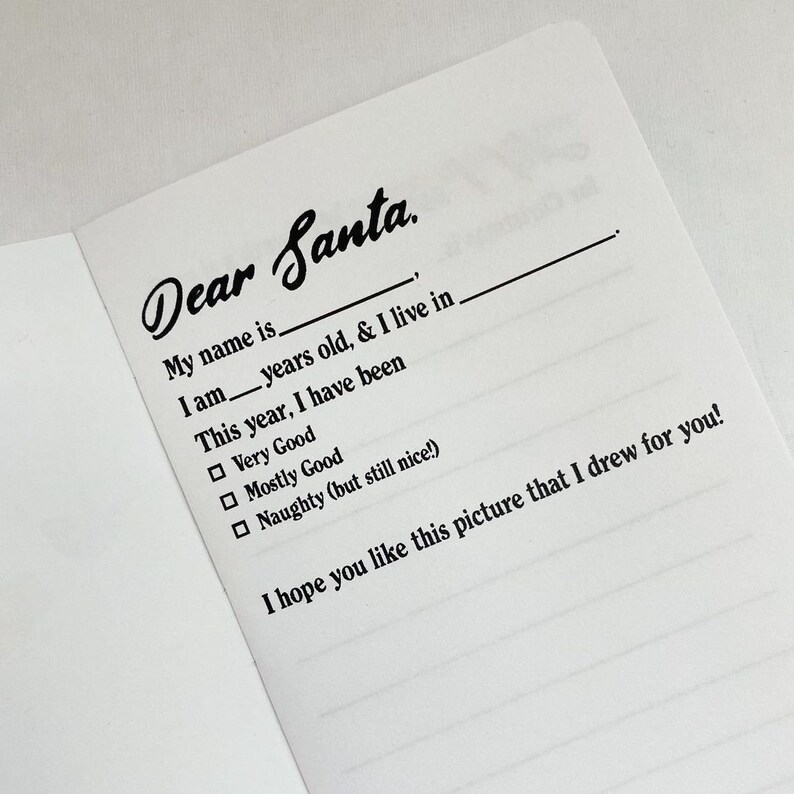 Dear Santa,
My name is__________,
I am___years old, & I live in____________.
This year, I have been
☐ Very Good
☐ Mostly Good
☐ Naughty (but still nice!)
I hope you like this picture that I drew for you!